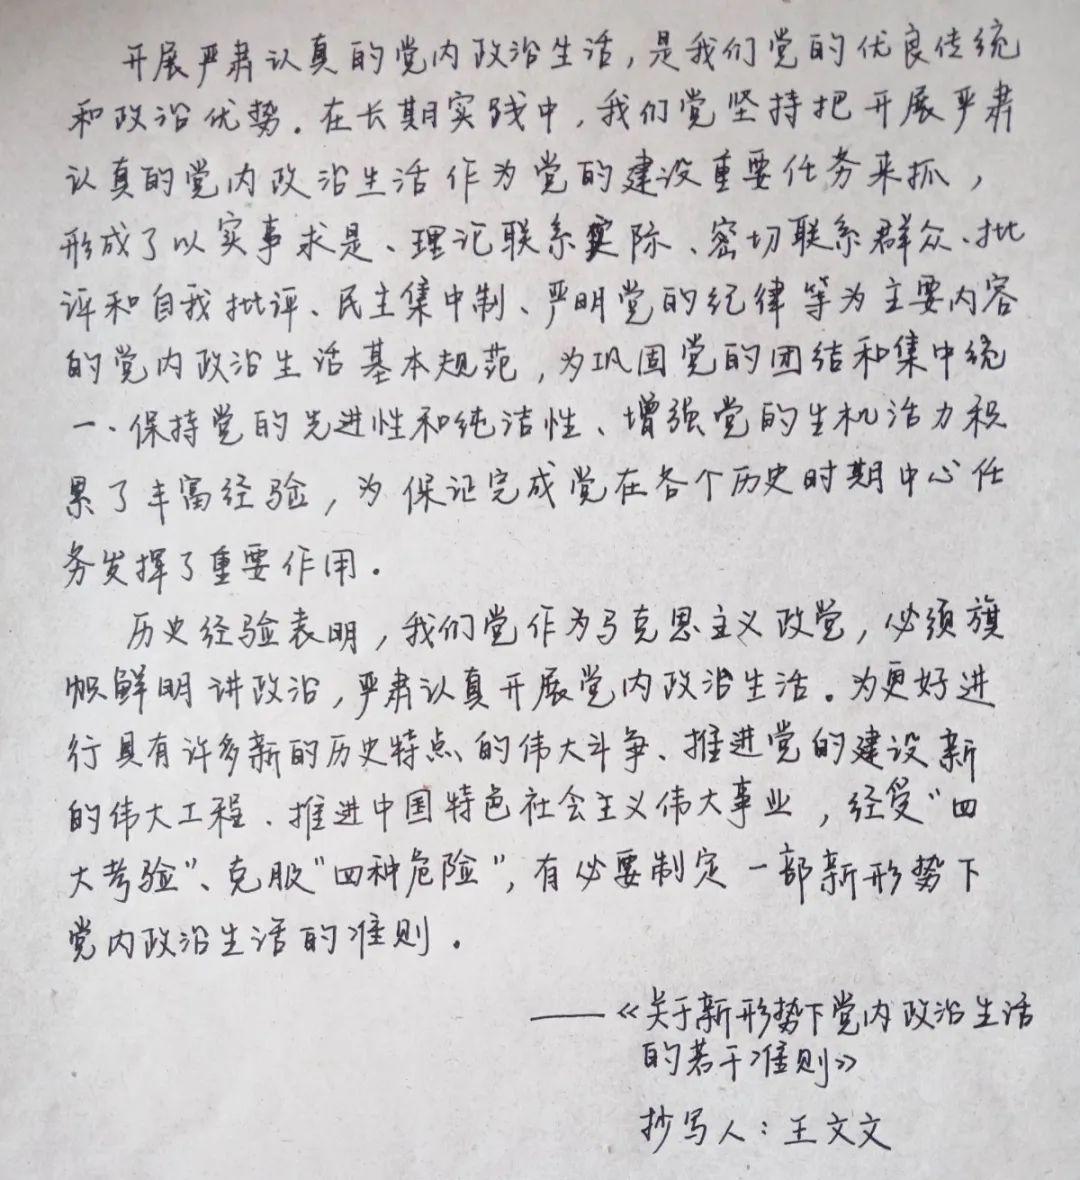 开展严肃认真的党内政治生活,是我们党的优良传统
和政治优势.在长期实践中,我们党坚持把开展严肃
认真的党内政治生活作为党的建设重要任务来抓,
形成了以实事求是、理论联系实际、密切联系群众、批
评和自我批评、民主集中制、严明党的纪律等为主要内容
的党内政治生活基本规范,为巩固党的团结和集中统
一、保持党的先进性和纯洁性、增强党的生机活力积
累了丰富经验,为保证完成党在各个历史时期中心任
务发挥了重要作用.
历史经验表明,我们党作为马克思主义政党,必须旗
帜鲜明讲政治,严肃认真开展党内政治生活。为更好进
行具有许多新的历史特点的伟大斗争、推进党的建设新
的伟大工程、推进中国特色社会主义伟大事业,经受"四
大考验"、克服"四种危险",有必要制定一部新形势下
党内政治生活的准则.
——《关于新形势下党内政治生活
的若干准则》
抄写人:王文文